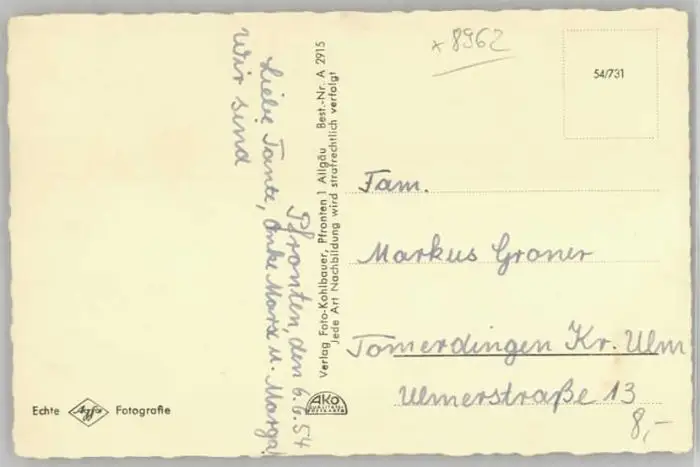 Pfronten, den 6.6.54
Liebe Tante, Onke Marx u. Marga!
Wir sind
Verlag Foto-Kohlbauer, Pfronten 1 Allgäu Best.-Nr. A 2915
Jede Art Nachbildung wird strafrechtlich verfolgt
* 8962
54/731
Fam.
Markus Groner
Tomerdingen Kr. Ulm
Ulmerstraße 13
8,-
Echte Agfa Fotografie
AKO